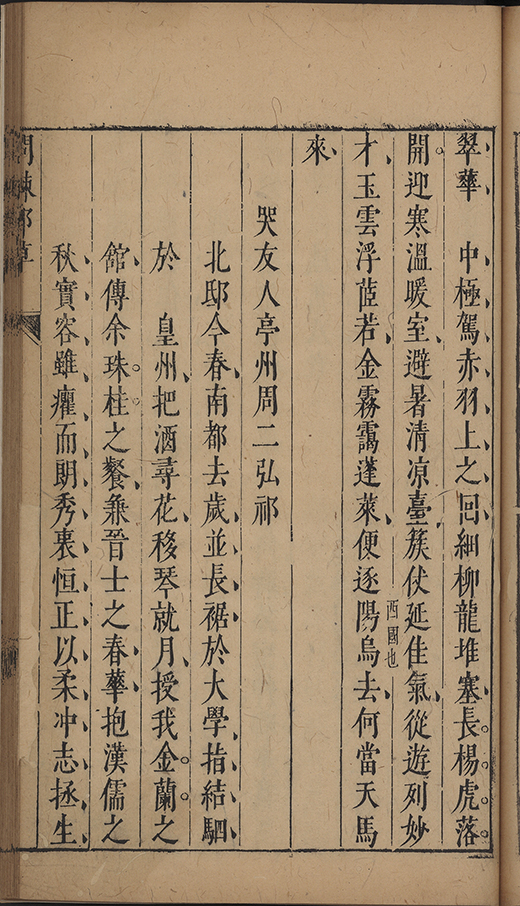 翠華　中極駕赤羽上之囘細柳龍堆塞長楊虎落
開迎寒溫暖室避暑清凉臺簇伏延佳氣從遊列妙
才玉雲浮苉若金霧靄蓬萊便逐陽烏西國也去何當天馬
來
哭友人亭州周二弘祁
北邸今春南都去歲並長裾於大學指結駟
於　皇州把酒尋花移琴就月授我金蘭之
舘傳余珠柱之餐兼晉士之春華抱漢儒之
秋實容雖癯而朗秀裏恒正以柔冲志拯生